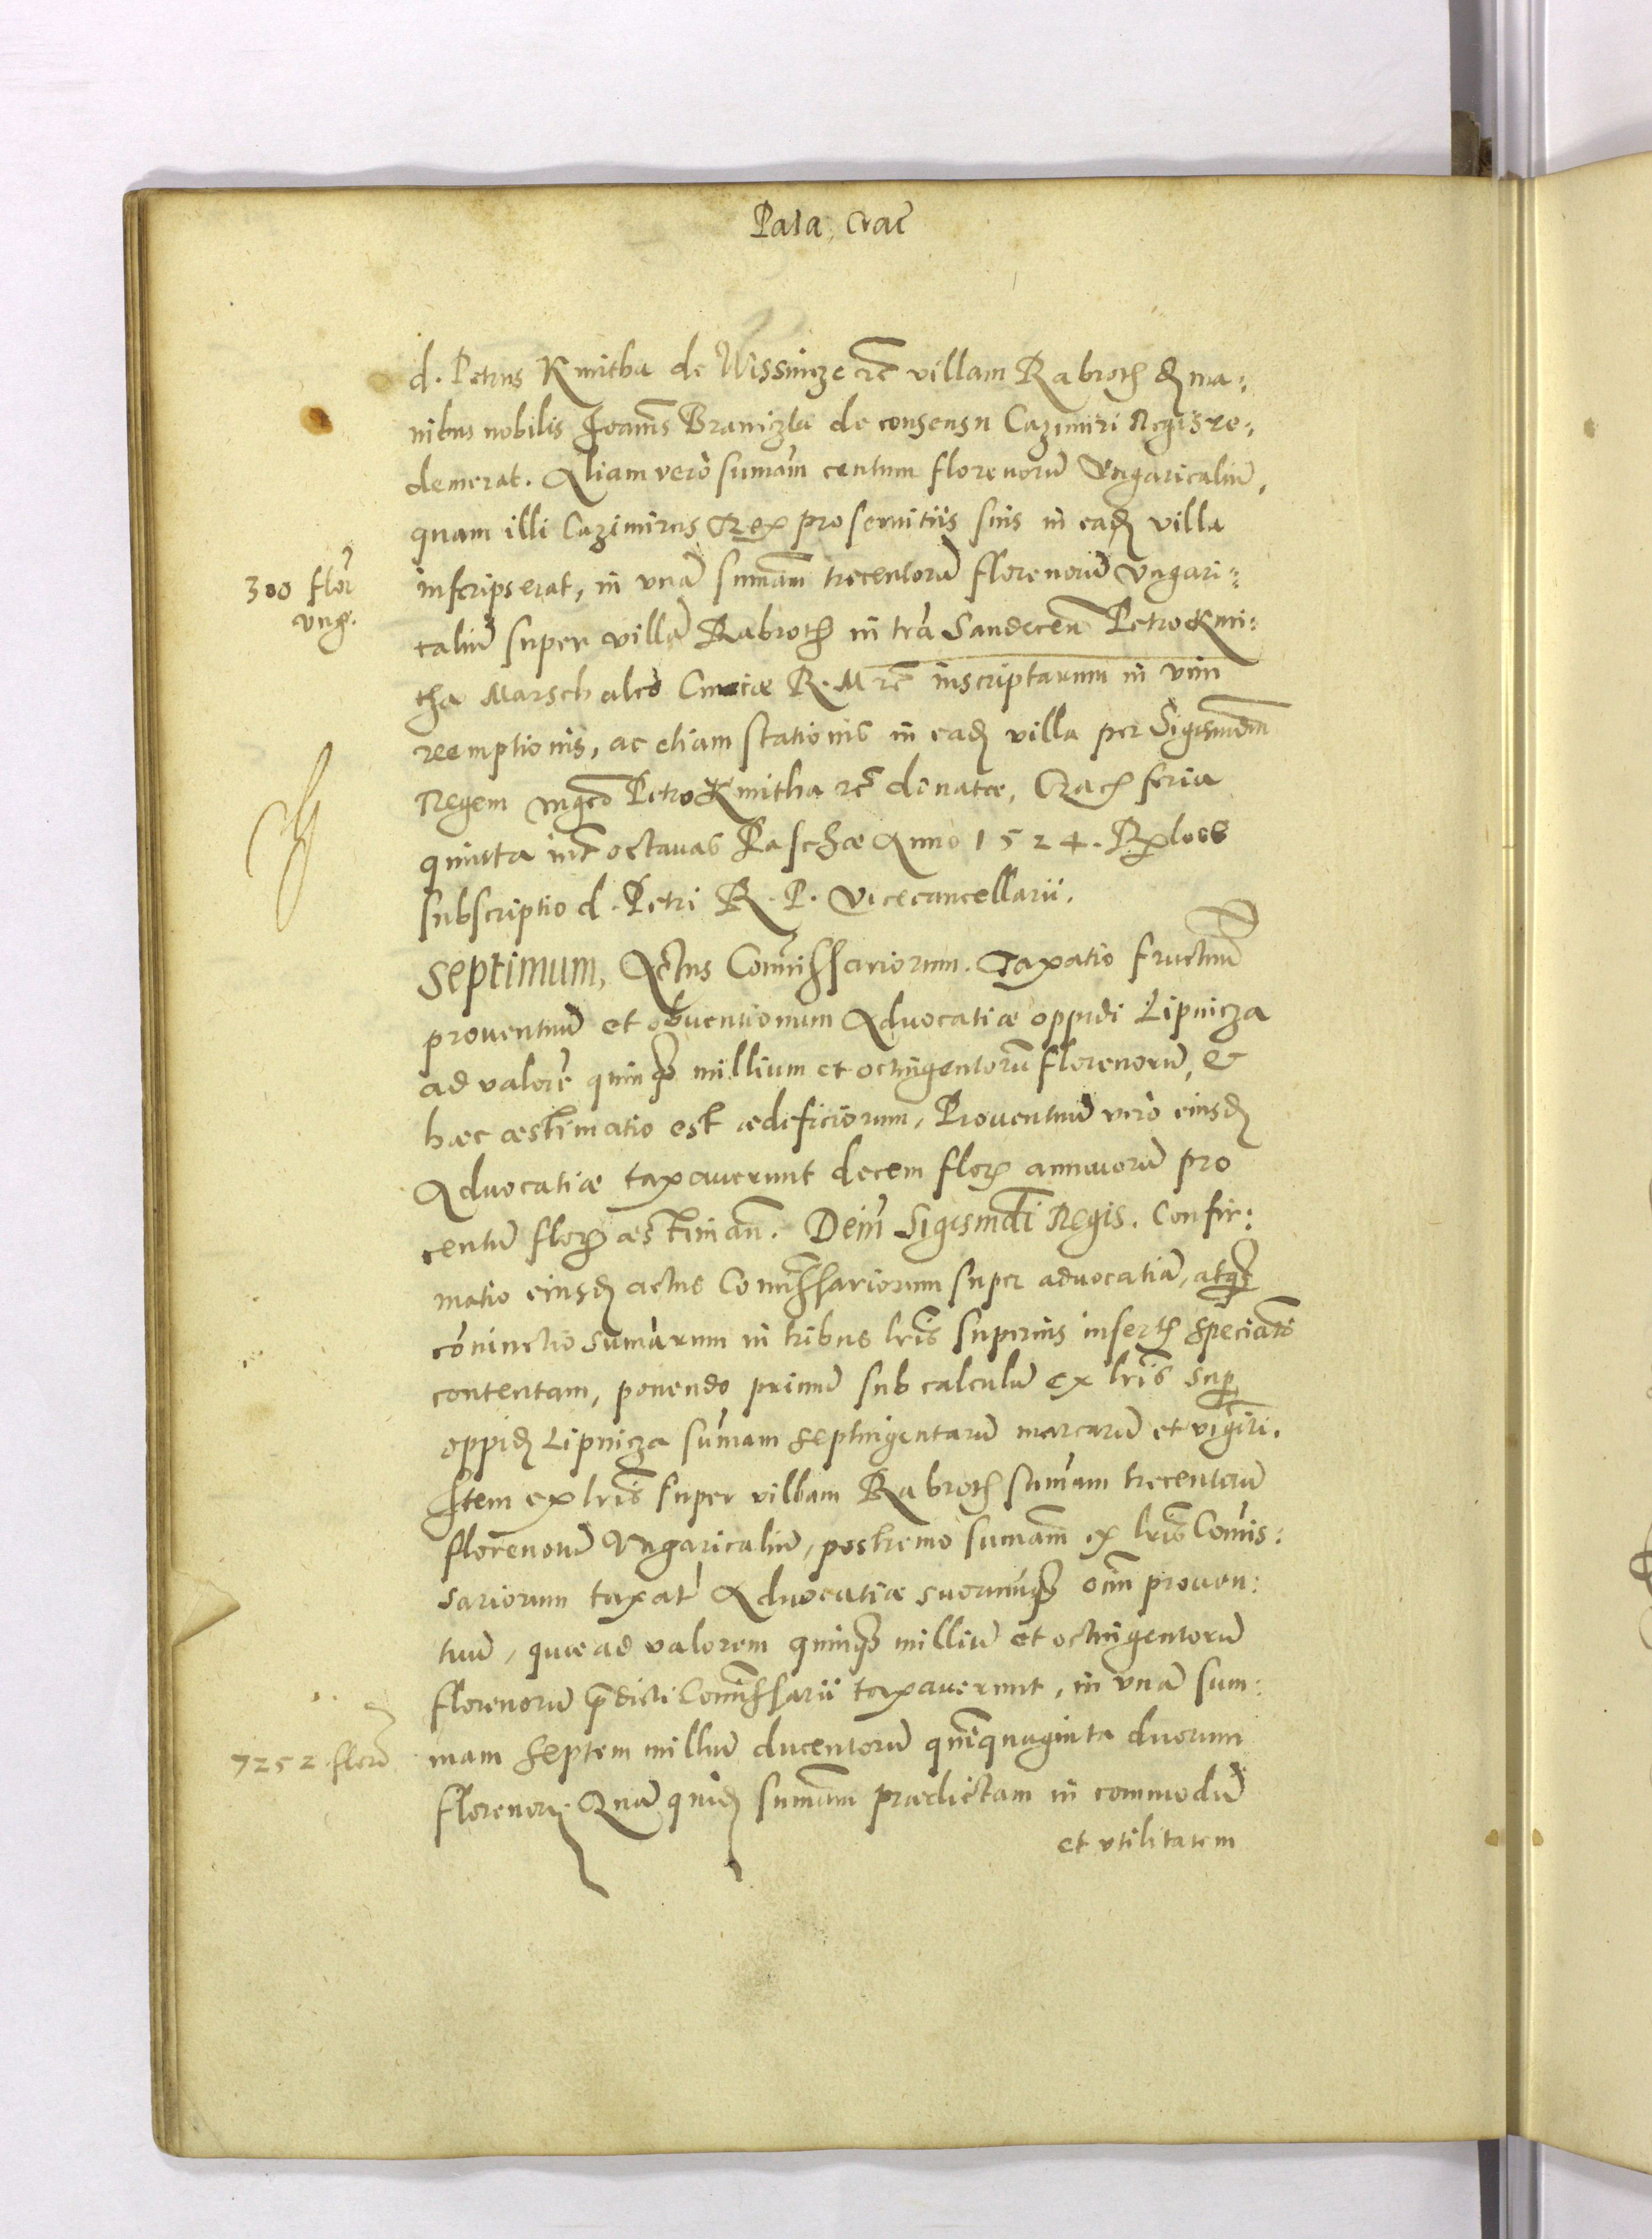 Pala, Crac̄
d. Petrus Kmitha de Wissnicze etc̄ villam Rabroth de ma:
nibus nobilis Joan̄is Braniczka de consensu Cazimiri Regis re,
demerat. Aliam verò sumam̄ centum florenorū Vngaricaliū,
quam illi Cazimirus Rex pro seruitiis suis in eadē villa
300 flor̄
vng.
inscripserat, in vnā sumam̄ trecentorū florenorū vngari:
caliū super villā Rabroth in tr̄a Sandecen̄ Petro Kmi:
tha Marschalco Curiæ R. M etc̄ inscriptarum in vim
reemptionis, ac etiam stationis in eadē villa per Sigismdm̄
Regem mgco Petro Kmitha etc̄ donatæ, Crac feria
quinta int̄ octauas Paschæ Anno 1524.
subscriptio d. Petri R. P. Vicecancellarii.
Septimum, Actus Com̄issariorum. Taxatio fructuū
prouentuū et obuentionum Aduocatiæ oppidi Lipnicza
ad valorē quinq millium et octingentorū florenorū, &
hæc æstimatio est ædificiorum, Prouentuū verò eiusd
Aduocatiæ taxauerunt decem flor annuorū pro
centū flor æstiman̄. Dein̄ Sigismd̄i Regis. Confir:
matio eiusd actus Com̄issariorum super aduocatiā, atq
coniunctio sum̄arum in tribus lr̄is superius insert speciat̄
contentam, ponendo primū sub calculū ex lr̄is sup
oppid Lipnicza sum̄am septingentarū marcarū et vigīti.
Item ex lr̄is super villam Rabroth sum̄am trecentorū
florenorū Vngaricaliū, postremo sumam̄ ex lr̄is Com̄is:
sariorum taxat̄ Aduocatiæ suorumq om̄n prouen:
tuū, quæ ad valorem quinq milliū et octingentorū
florenorū p̄dicti Com̄issarii taxauerunt, in vnā sum:
7252 florē
mam septem milliū ducentorū quīquaginta duorum
florenor. Quā quid sumam̄ prædictam in commodū
et vtilitatem